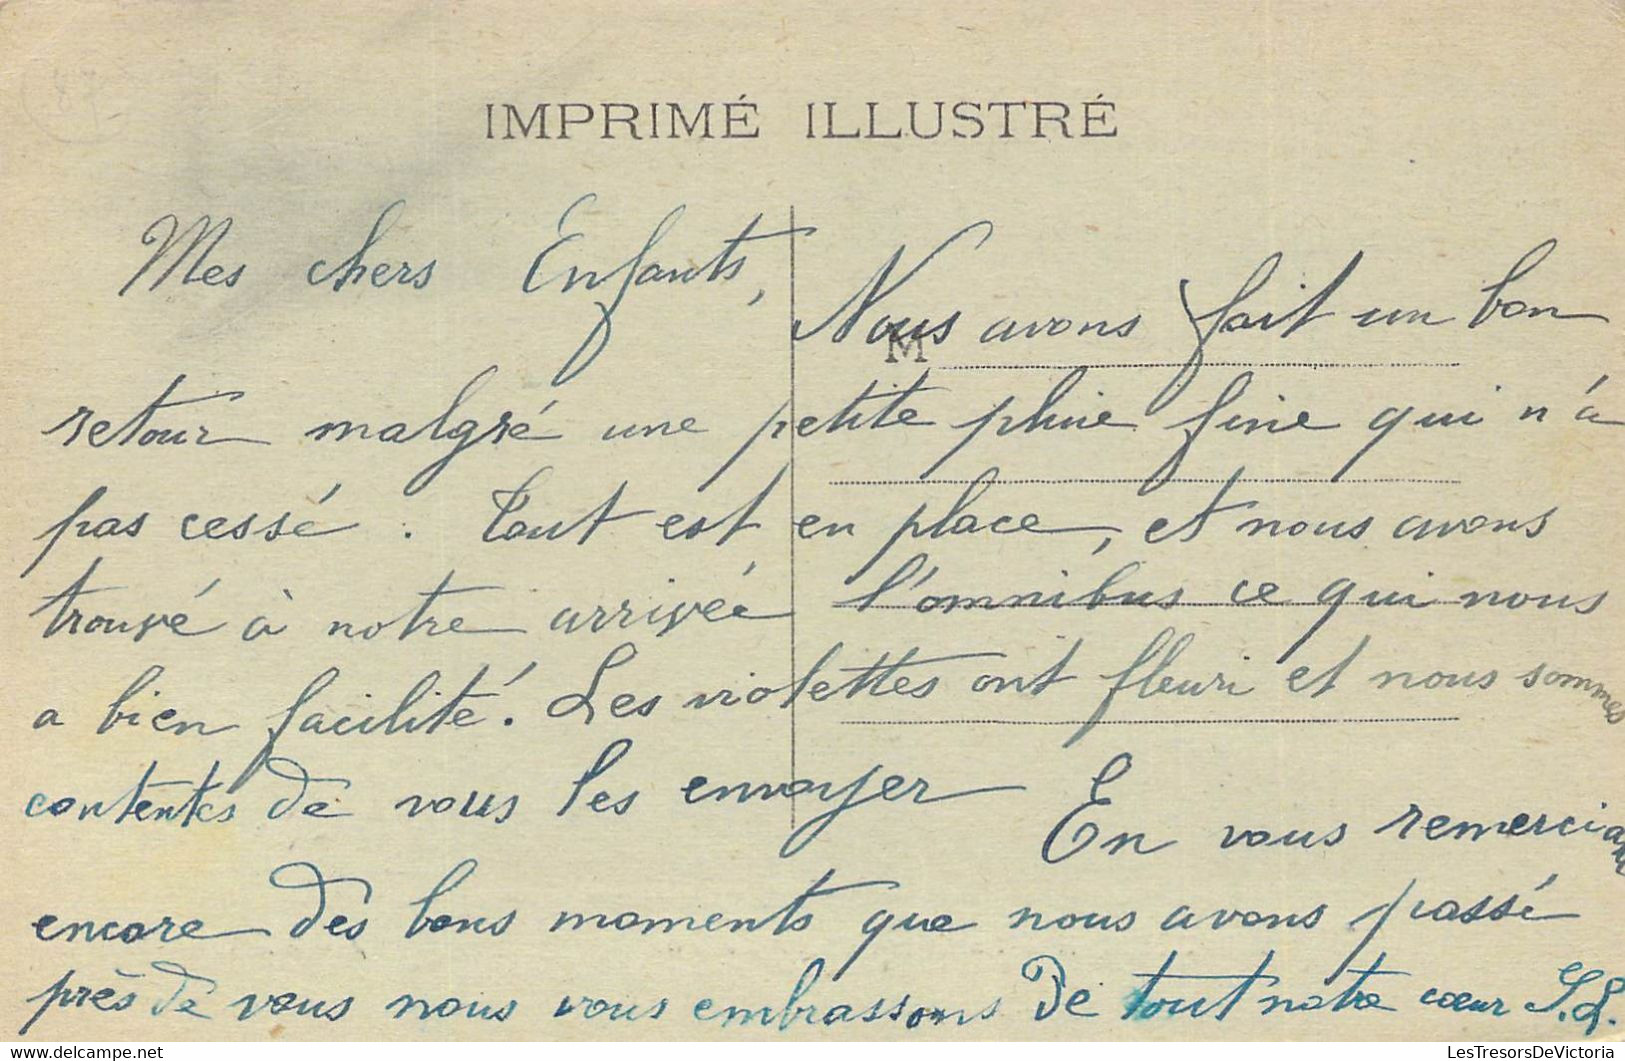 IMPRIMÉ ILLUSTRÉ
Mes chers Enfants,
Nous avons fait un bon
M
retour malgré une petite pluie fine qui n'a
pas cessé. Tout est en place, et nous avons
trouvé à notre arrivée l'omnibus ce qui nous
a bien facilité. Les violettes ont fleuri et nous sommes
contentes de vous les envoyer En vous remerciant
encore des bons moments que nous avons passé
près de vous nous vous embrassons De tout notre cœur S.L.
LesTresorsDeVictoria